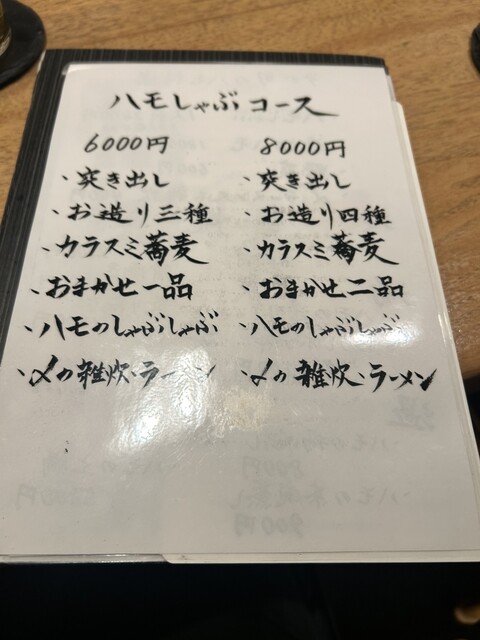 ハモしゃぶコース
6000円
・突き出し
・お造り三種
・カラスミ蕎麦
・おまかせ一品
・ハモのしゃぶしゃぶ
・〆の雑炊・ラーメン
8000円
・突き出し
・お造り四種
・カラスミ蕎麦
・おまかせ二品
・ハモのしゃぶしゃぶ
・〆の雑炊・ラーメン